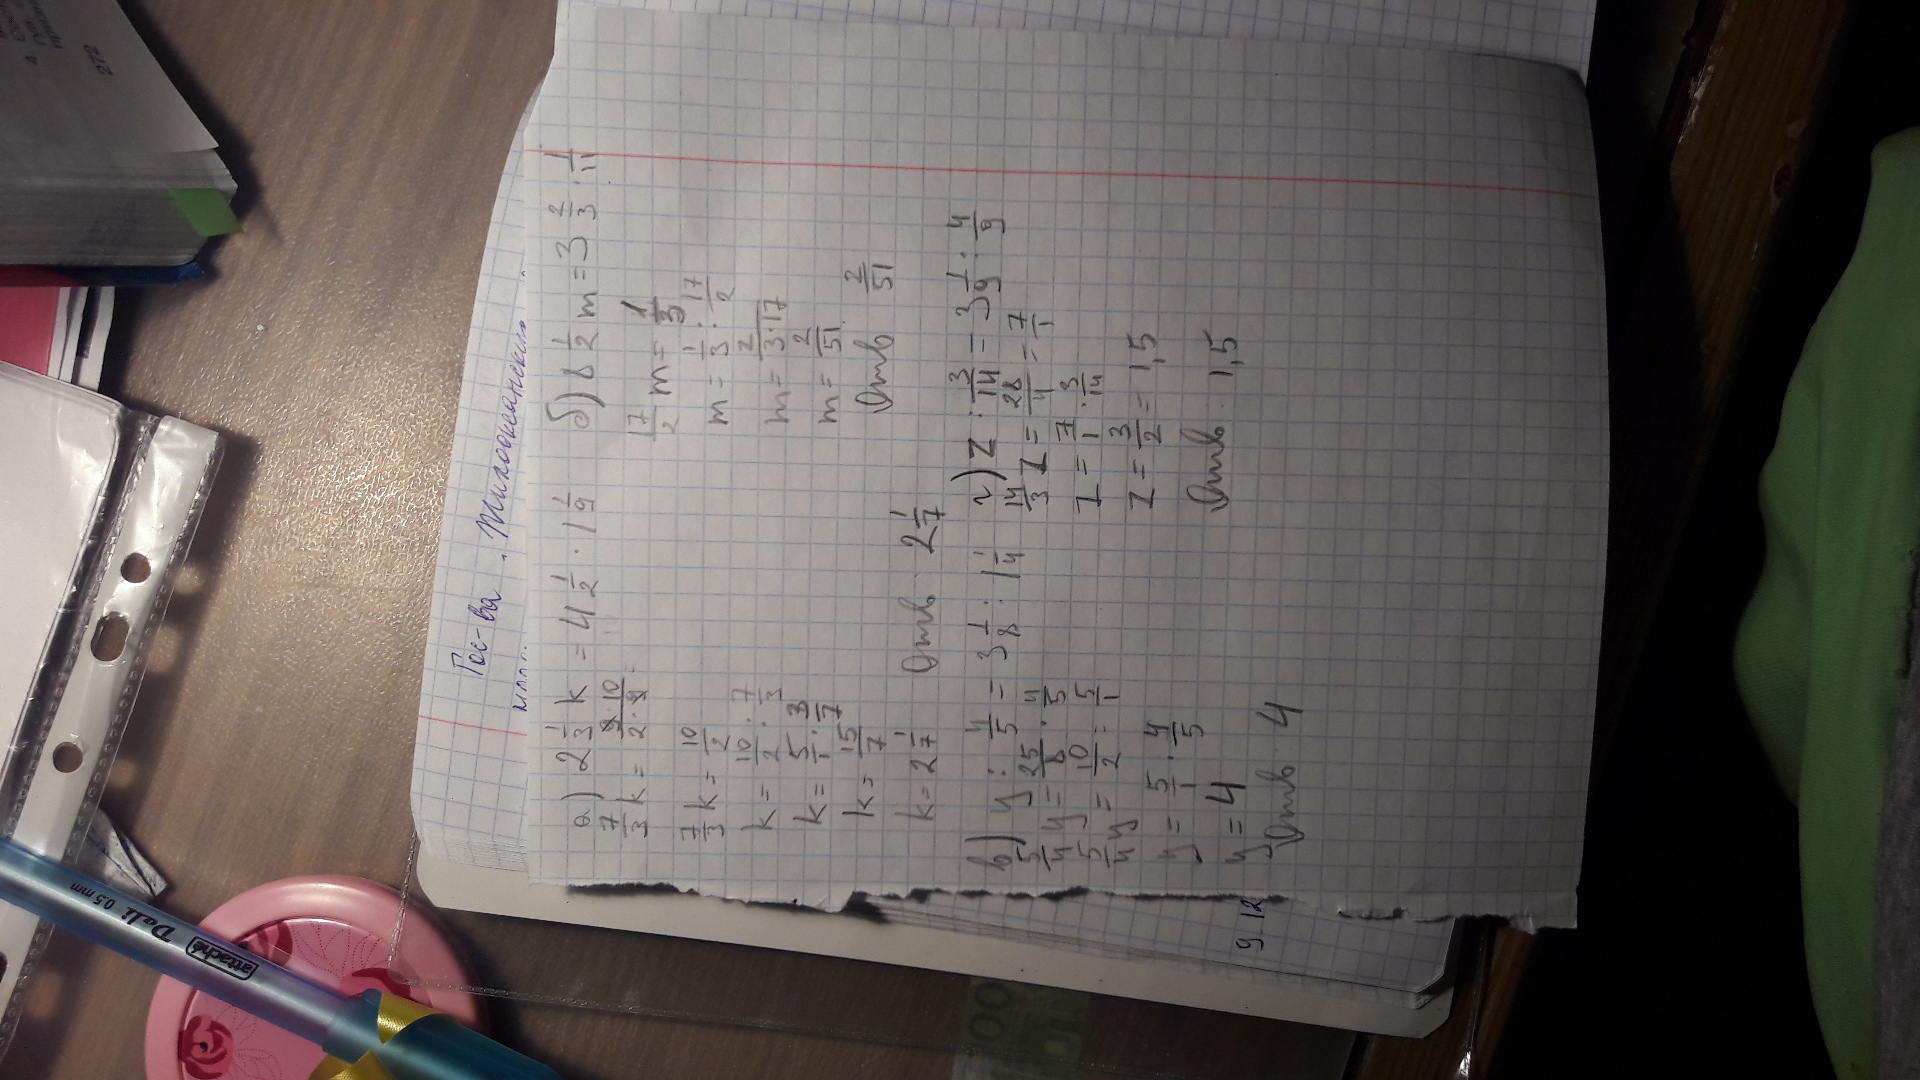 Гос-ва
Тихоокеанских
а) 2 1/3 k = 4 1/2 · 1 1/9
7/3 k = 9·10/2·9 =
7/3 k = 10/2
k = 10/2 : 7/3
k = 5/1 · 3/7
k = 15/7
k = 2 1/7
Ответ 2 1/7
б) 8 1/2 m = 3 2/3 · 1/11
17/2 m = 1/3
m = 1/3 : 17/2
m = 2/3·17
m = 2/51
Ответ 2/51
в) y : 4/5 = 3 1/8 : 1 1/4
5/4 y = 25/8 · 4/5
5/4 y = 10/2 = 5/1
y = 5/1 · 4/5
y = 4
Ответ 4
г) z : 3/14 = 3 1/9 : 4/9
14/3 z = 28/4 = 7/1
z = 7/1 · 3/14
z = 3/2 = 1,5
Ответ 1,5
9.12
272
attaché Dali 0.5 mm
100